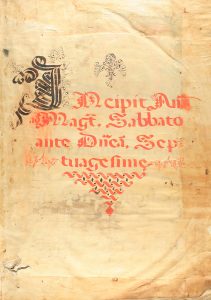 INcipit Ana
Magt. Sabbato
ante Dn̄cā, Sep-
tuagesime